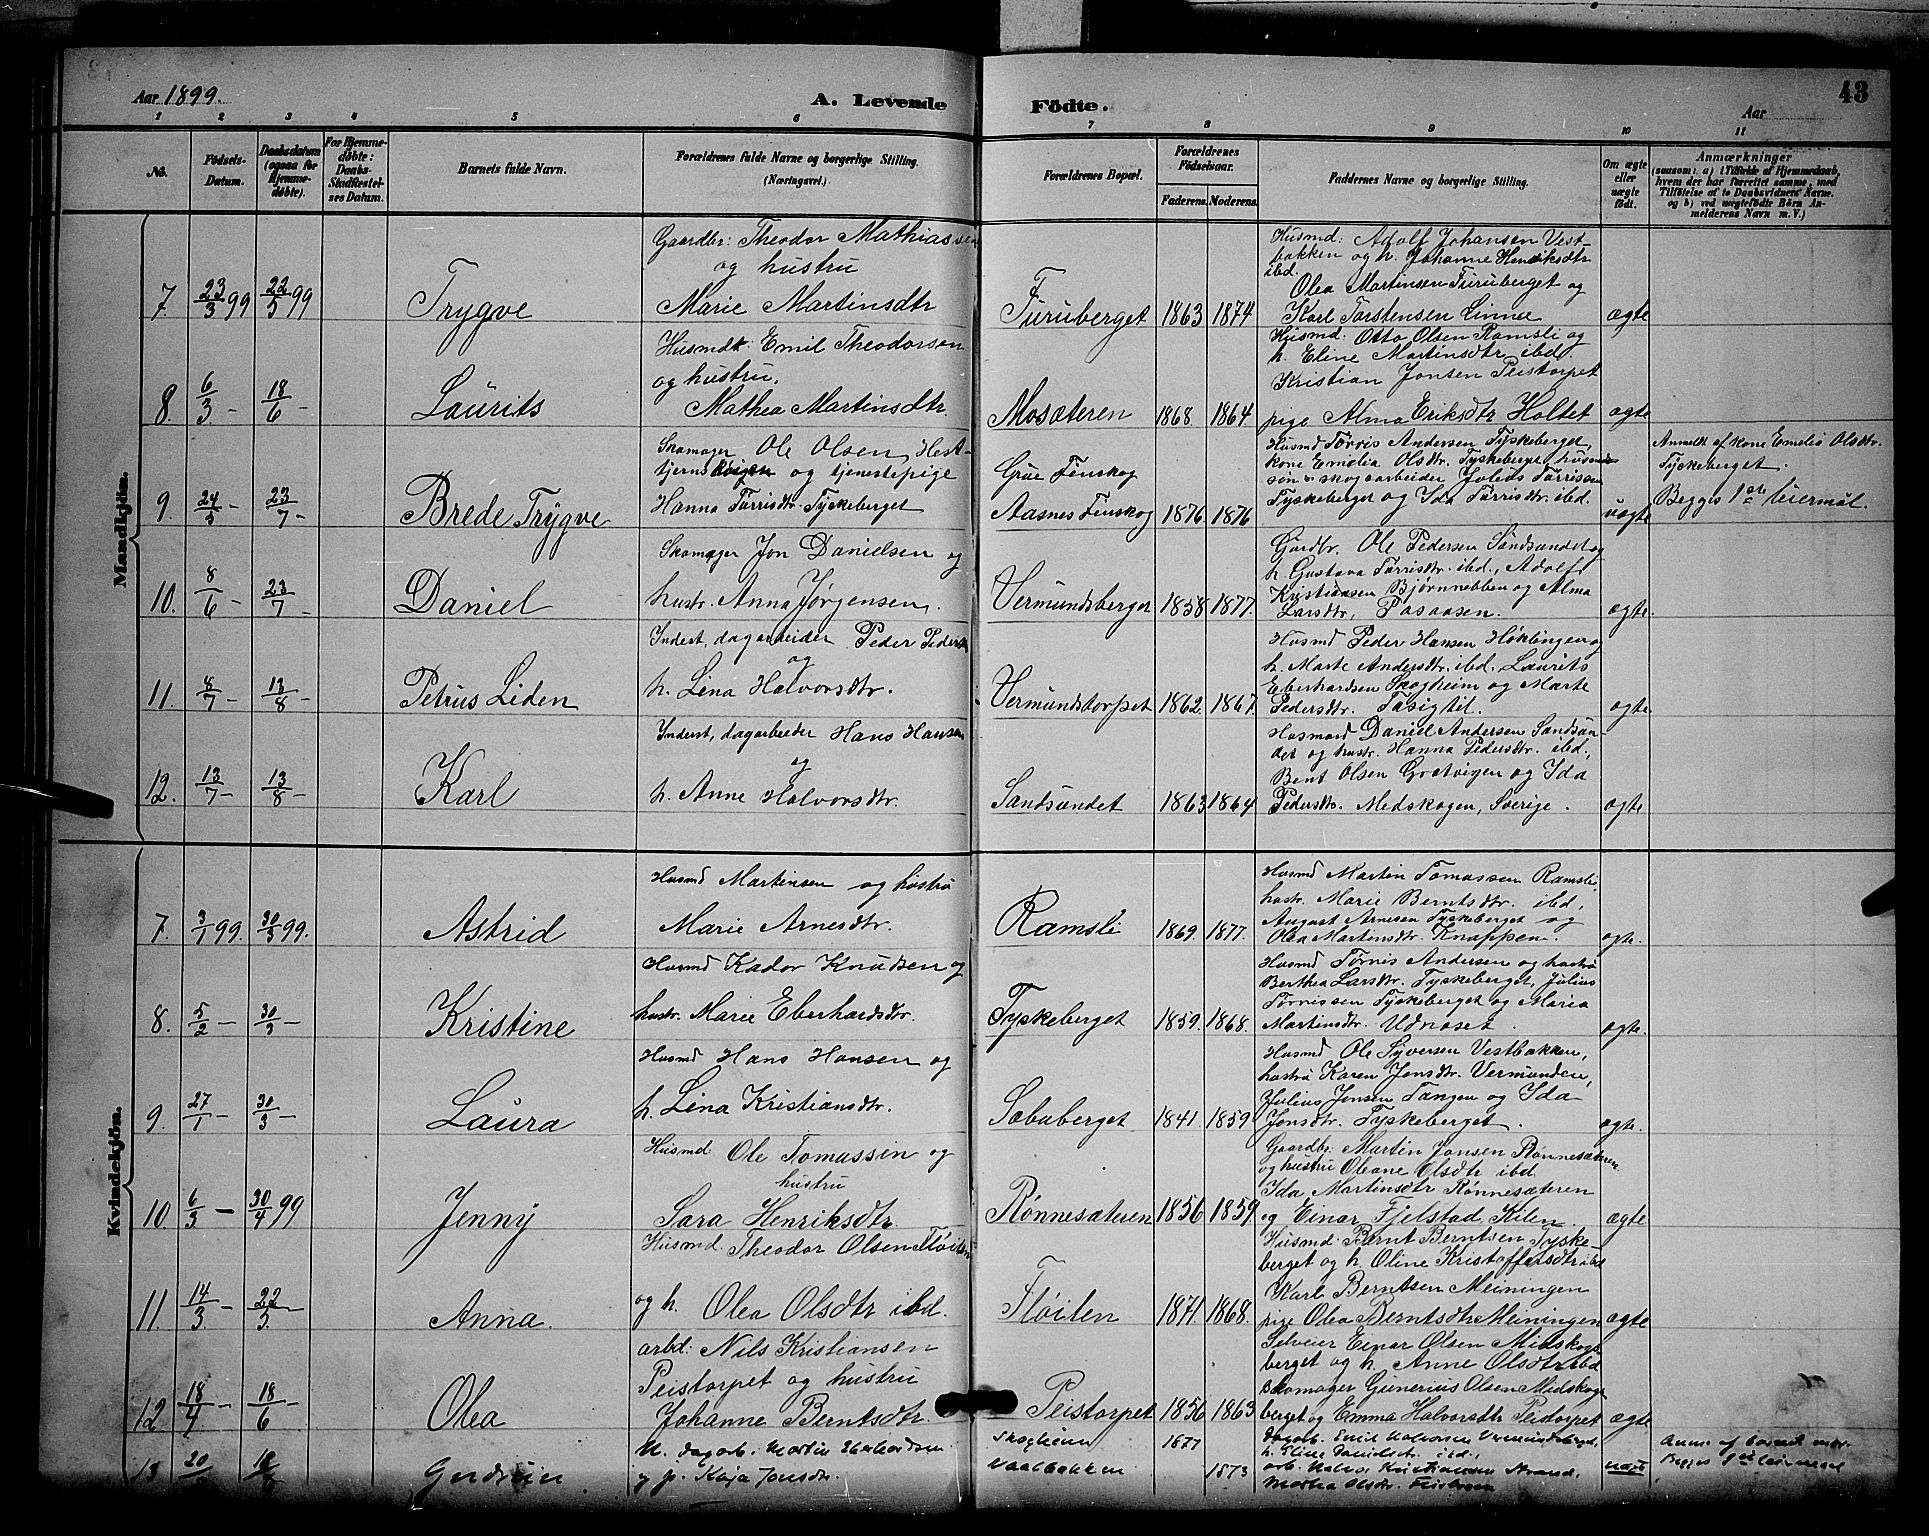 Aar 1899.
A. Levende
Födte.
Aar
43
1 2 3 4 5 6 7 8 9 10 11
No.
Födsels-
Datum.
Daabsdatum
(ogsaa for
Hjemme-
døbte).
For Hjemme-
døbte:
Daabs-
Stadfæstel-
ses Datum.
Barnets fulde Navn.
Forældrenes fulde Navne og borgerlige Stilling.
(Næringsvei.)
Forældrenes Bopæl.
Forældrenes
Födselsaar.
Faderens. Moderens.
Faddernes Navne og borgerlige Stilling.
Om ægte
eller
uægte
født.
Anmærkninger
(saasom: a) i Tilfælde af Hjemmedaab,
hvem der har forrettet samme, med
Tilföielse af to Daabsvidners Navne.
og b) ved uægtefödte Börn An-
melderens Navn m. V.)
Mandkjön.
Gaardbr: Theodor Mathiassen
og hustru
Marie Martinsdtr
7. 23/3 99 22/5 99 Trygve
Furuberget 1863 1874
Husmd: Adolf Johansen Vest-
bakken og h. Johanne Henriksdtr
ibd.
Olea Martinsen Furuberget og
Karl Torstensen Linna
ægte
Husmdt: Emil Theodorsen
og hustru.
Mathea Martinsdtr
8. 6/3 - 18/6 - Laurits
Mosæteren 1868 1864
Husmd: Otto Olsen Ramsli og
h. Eline Martinsdtr ibd.
Kristian Jonsen Peistorpet
pige Alma Eriksdtr Holtet
ægte
Skomager Ole Olsen, Hest-
tjernskoigen og tjenestepige
Hanna Tørrisdtr. Tyskeberget
9. 24/5 - 23/7 - Brede Trygve
Grue Finskog
Aasnes Finskog 1876 1876
Husmd Tørris Andersen Tyskeberget,
kone Emelia Olsdtr. Tyskeberget, husm-
søn & skogarbeider Julius Tørrissen
Tyskeberget og Ida Tørrisdtr. ibd.
uægte
Anmeldt af kone Emelie Olsdtr.
Tyskeberget.
Begges 1ste leiermål.
Skomager Jon Danielsen og
hustr. Anna Jørgensen.
10. 8/6 - 23/7 - Daniel
Vermundsberget 1858 1877.
Gårdbr. Ole Pedersen Sandsundet og
h. Gustava Tørrisdtr. ibd., Adolf
Kristiansen Bjørnnebben og Alma
Larsdtr, Pasaasen.
ægte.
Inderst, dagarbeider Peder Pedersen
og
h. Lina Halvorsdtr.
11. 8/7 - 13/8 - Petrus Liden
Vermundstorpet 1862 1867.
Husmd Peder Hansen Høklingen og
h. Marte Andersdtr. ibd. Laurits
Eberhardsen Skogheim og Marte
Pedersdtr. Tasigtil.
ægte.
Inderst, dagarbeider Hans Hansen
og
h. Anne Halvorsdtr.
12. 13/7 - 13/8 - Karl
Sandsundet 1863 1864
Husmand Daniel Andersen Sandsun-
det og hustr. Hanna Pedersdtr. ibd.,
Bent Olsen Grætvigen og Ida
Pedersdtr. Medskogen, Sverige.
ægte
Kvindekjön.
Husmd Martinsen og hustru
Marie Arnesdtr.
7. 3/1 99. 30/3 99. Astrid
Ramsli 1869. 1877.
Husmd Martin Tomassen Ramsli,
hustr. Marie Berntsdtr. ibd,
August Arnesen Tyskeberget og
Olea Martinsdtr. Knappen.
ægte.
Husmd Kador Knudsen og
hustr. Marie Eberhardsdtr.
8. 5/2 - 30/3 - Kristine
Tyskeberget 1859. 1868.
Husmd Tørris Andersen og hustru
Berthea Larsdtr. Tyskeberget, Julius
Tørrissen Tyskeberget og Maria
Martinsdtr. Udnaset.
ægte.
Husmd Hans Hansen og
h. Lina Kristiansdtr.
9. 27/1 - 30/3 - Laura
Sæbuberget 1841 1859
Husmd Ole Syversen Vestbakken,
hustru Karen Jonsdtr. Vermunden,
Julius Jensen Tangen og Ida
Jonsdtr. Tyskeberget.
ægte.
Husmd Ole Tomassin og
hustru
Sara Henriksdtr.
10 6/3 - 30/4 99 Jenny
Rønnesæteren 1856 1859
Gaardbr Martin Jonsen Rønnesæteren
og hustru Oleane Olsdtr ibd
Ida Martinsdtr Rønnesæteren
og Einar Fjelstad Kilen.
ægte
Husmd. Theodor Olsen Fløiten
og h. Olea Olsdtr ibd.
11. 14/3 - 22/5 - Anna.
Fløiten 1871 1868.
Husmd. Bernt Berntsen Tyske-
berget og h. Oline Kristoffersdtr ibd
Karl Berntsen Meiningen
pige Olea Berntsdtr Meiningen
ægte
arbd: Nils Kristiansen
Peistorpet og hustru
Johanne Berntsdtr.
12 18/4 - 18/6 - Olea
Peistorpet 1856 1863
Selveier Einar Olsen Midskogs
berget og h. Anne Olsdtr ibd
Skomager Gunerius Olsen Midskogs
berget og Emma Halvorsdtr Peistorpet
ægte
U. dagarb. Martin Eberhardsen
og p. Kaja Jonsdtr.
13 20 18 Gudrun
Skogheim 1877
Vaalbakken 1873
Dagarb. Emil Halvorsen Vermundsberget,
h. Eline Danielsdt. ibd.
arb. Kristiansen Strand,
Martha Olsdtr.
uægte
Anm. af barnets mor.
Begges 1ste leiermaal